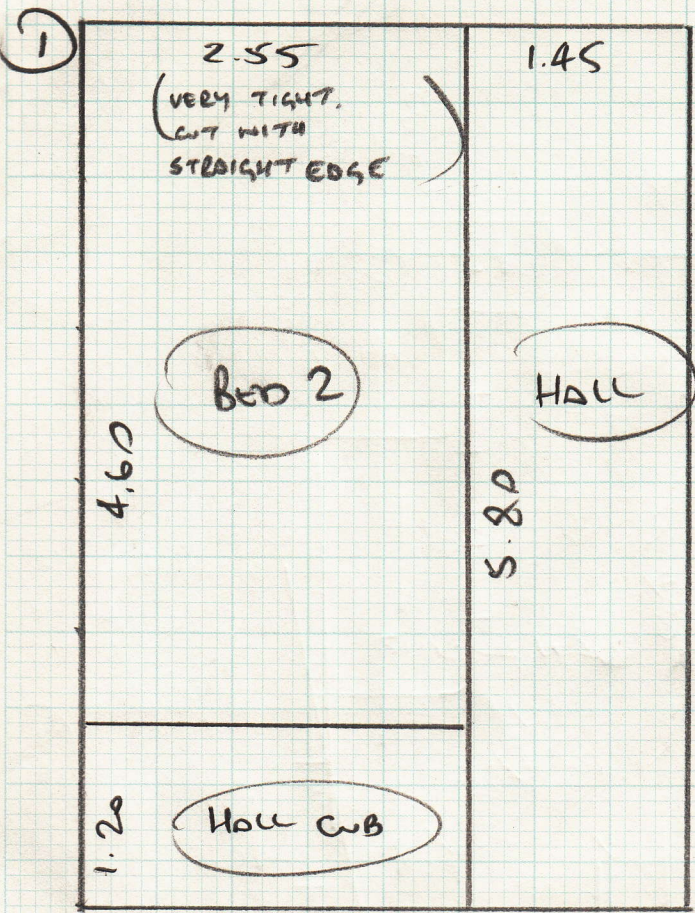 1
2.55
(VERY TIGHT.
CUT WITH
STRAIGHT EDGE)
1.45
BED 2
HALL
4.60
5.80
1.20
HALL CUB